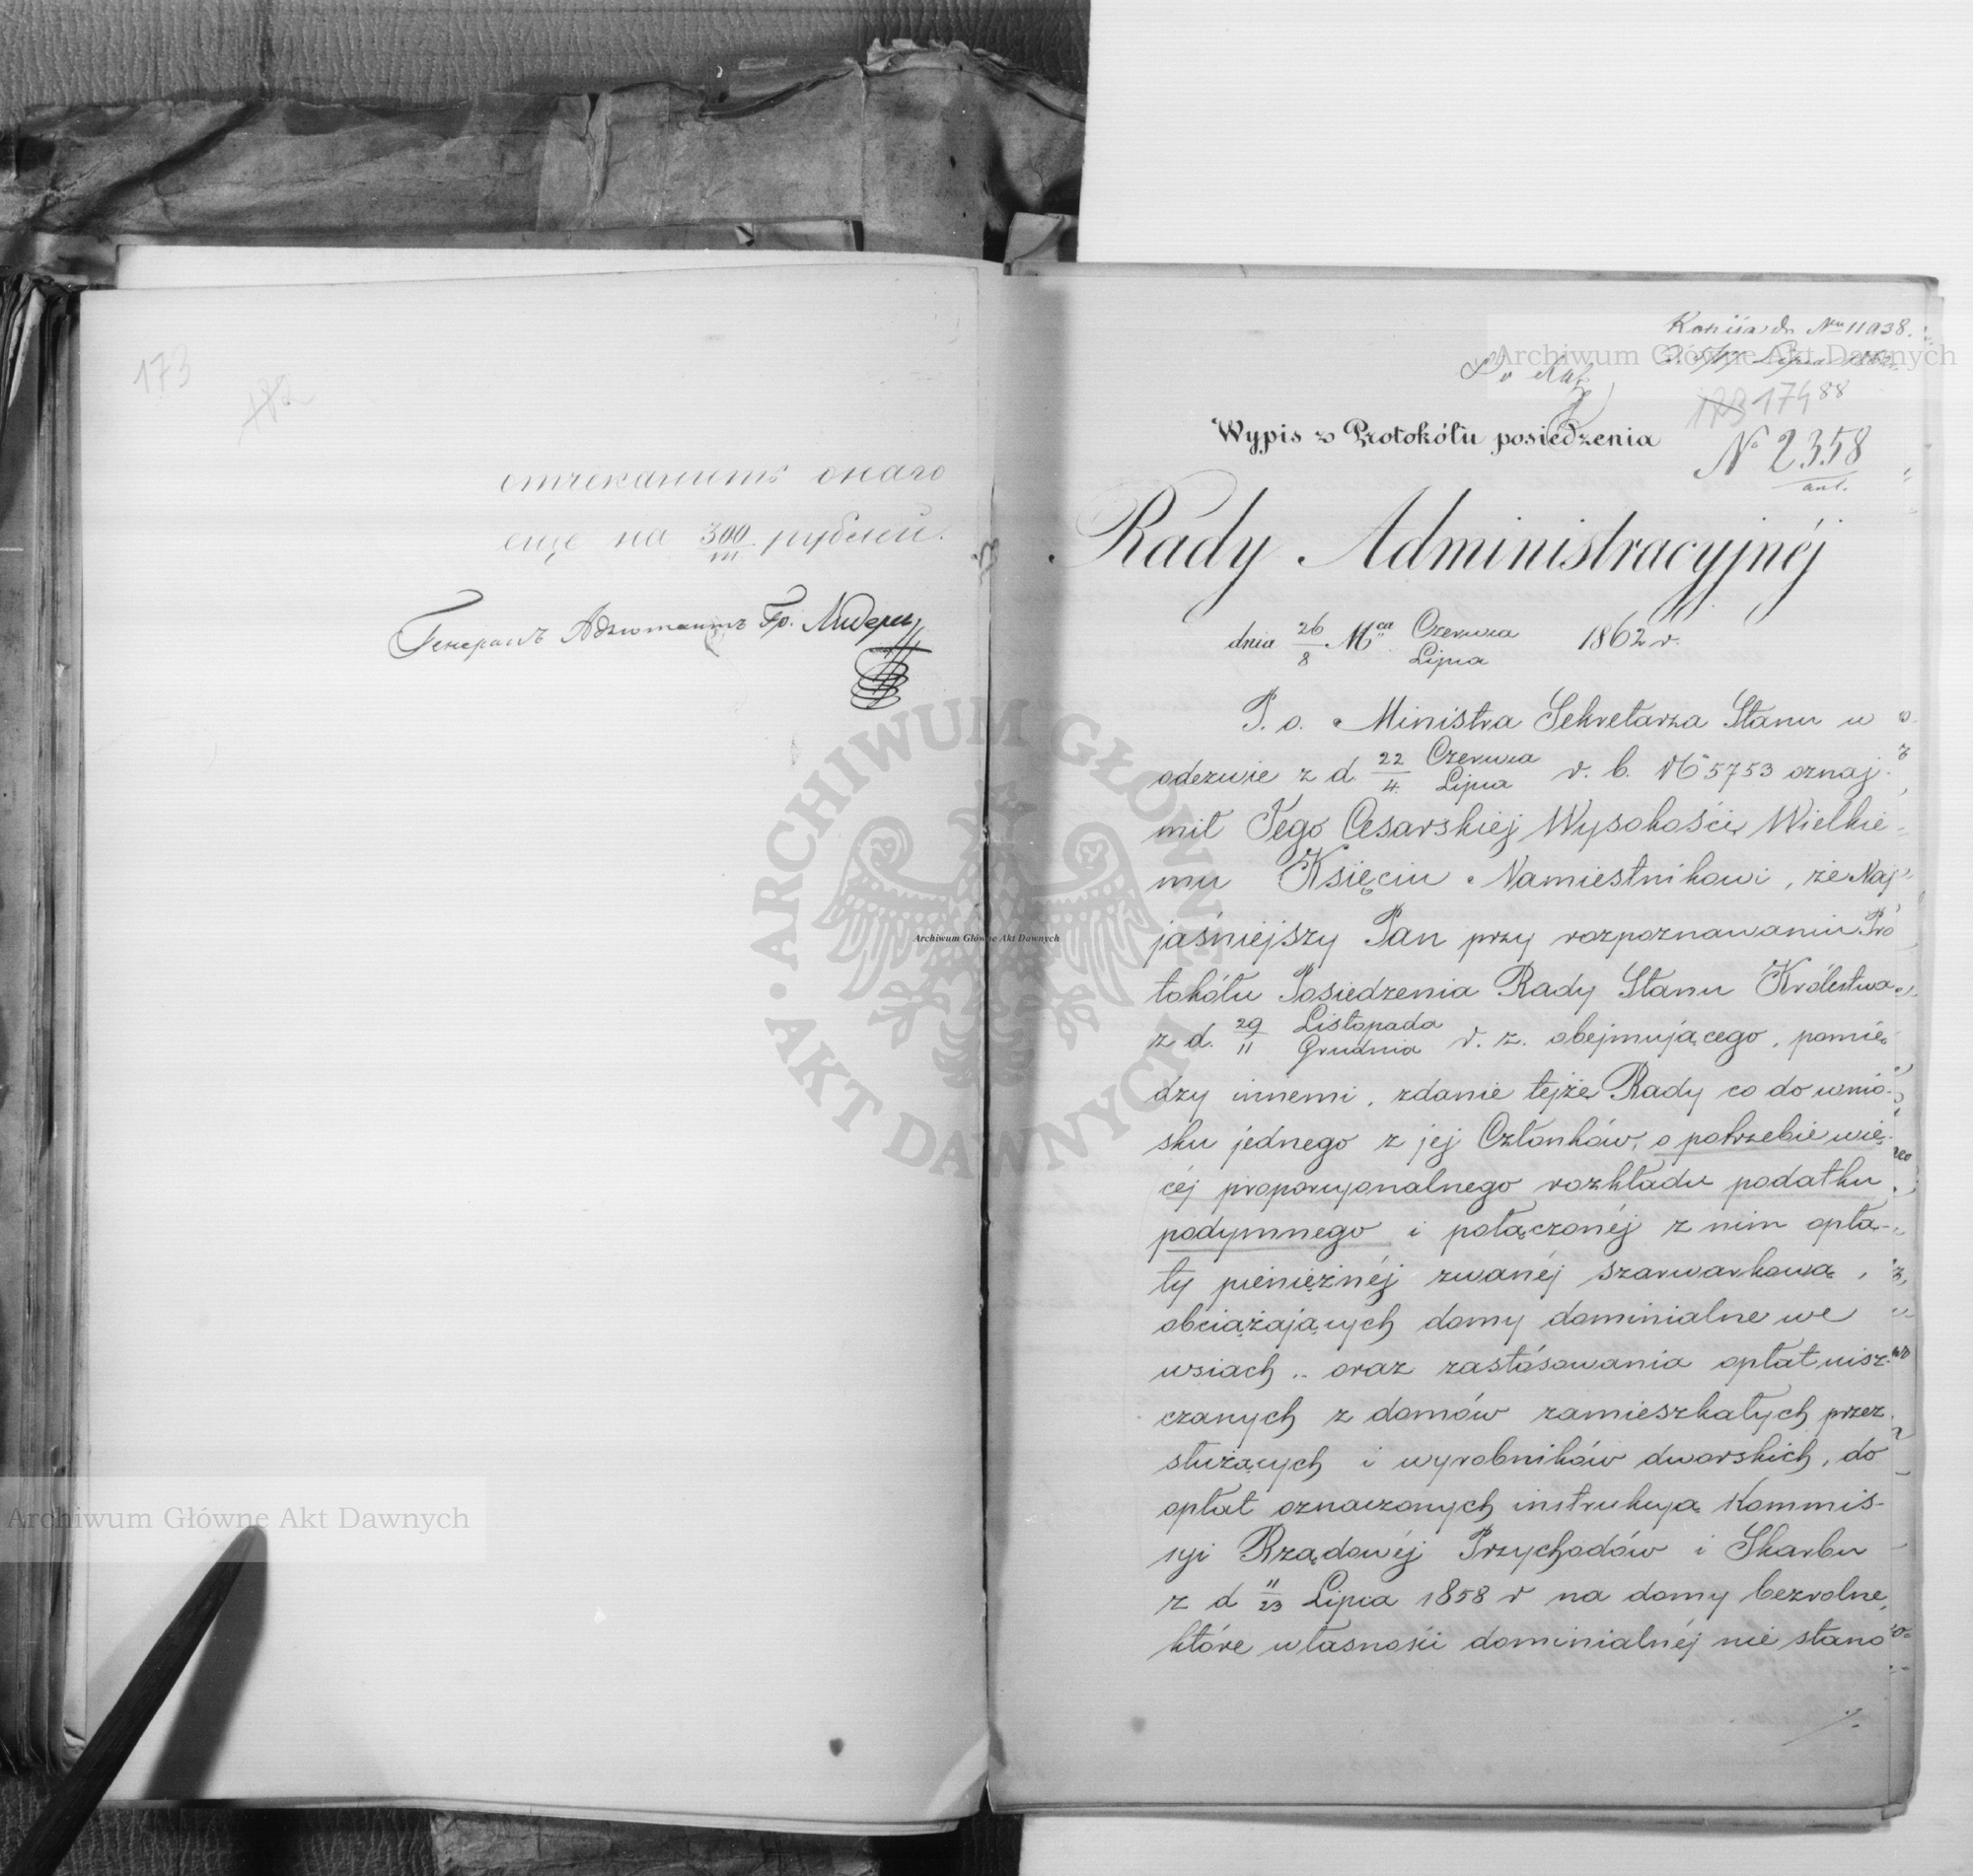 173
182
отчеканить онаго
еще на 300/m рублей.
Генералъ Адъютантъ Гр. Лидерс
Kopiia do Nru 11938.
Lipca 1862
173 174 88
Wypis z Protokółu posiedzenia
№ 2358
ant.
Rady Administracyjnéj
dnia 26/8 Mca Czerwca/Lipca 1862 r.
P. o. Ministra Sekretarza Stanu w
odezwie z d. 22/4 Czerwca/Lipca r. b. № 5753 oznaj-
mił Jego Cesarskiej Wysokości Wielkie-
mu Księciu Namiestnikowi, że Naj-
jaśniejszy Pan przy rozpoznawaniu Pro
tokółu Posiedzenia Rady Stanu Królestwa
z d. 29/11 Listopada/Grudnia r. z. obejmującego, pomię-
dzy innemi, zdanie tejże Rady co do wnio-
sku jednego z jej Członków, o potrzebie wię-
céj proporcyonalnego rozkładu podatku
podymnego i połączonéj z nim opła-
ty pieniężnéj zwanéj szarwarkową,
obciążających domy dominialne we
wsiach .. oraz zastósowania opłat uisz-
czanych z domów zamieszkałych przez
służących i wyrobników dworskich, do
opłat oznaczonych instrukcyą Kommis-
syi Rządowéj Przychodów i Skarbu
z d 11/23 Lipca 1858 r na domy bezrolne,
które własności dominialnéj nie stano
./.
Archiwum Główne Akt Dawnych
Archiwum Główne Akt Dawnych
Archiwum Główne Akt Dawnych
ARCHIWUM GŁÓWNE AKT DAWNYCH